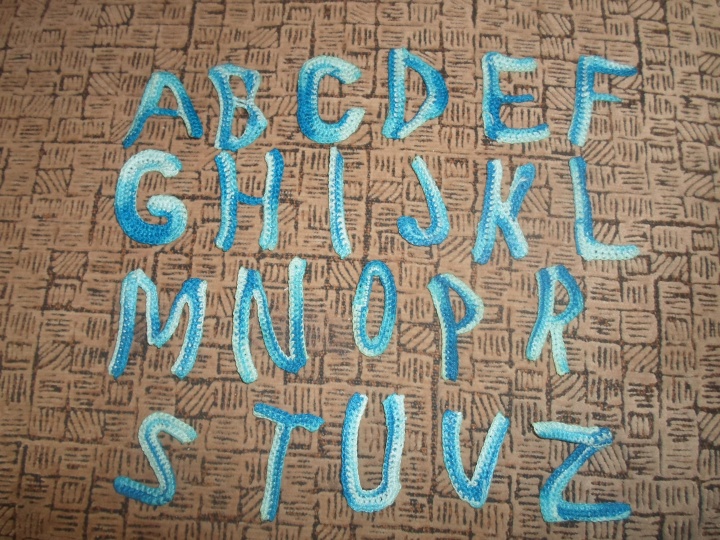 A B C D E F
G H I J K L
M N O P R
S T U V Z